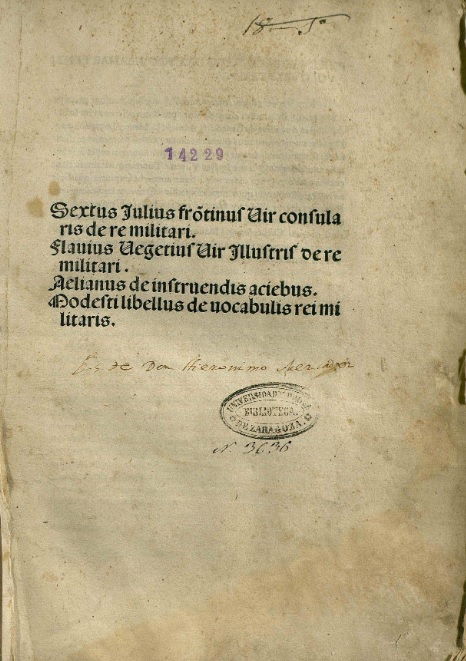 14229
Sextus Julius frõtinus Uir consula
ris de re militari.
Flauius Uegetius Uir Illustris de re
militari.
Aelianus de instruendis aciebus.
Modesti libellus de uocabulis rei mi
litaris.
de Don Hieronimo
BIBLIOTECA
DE ZARAGOZA
N. 3636